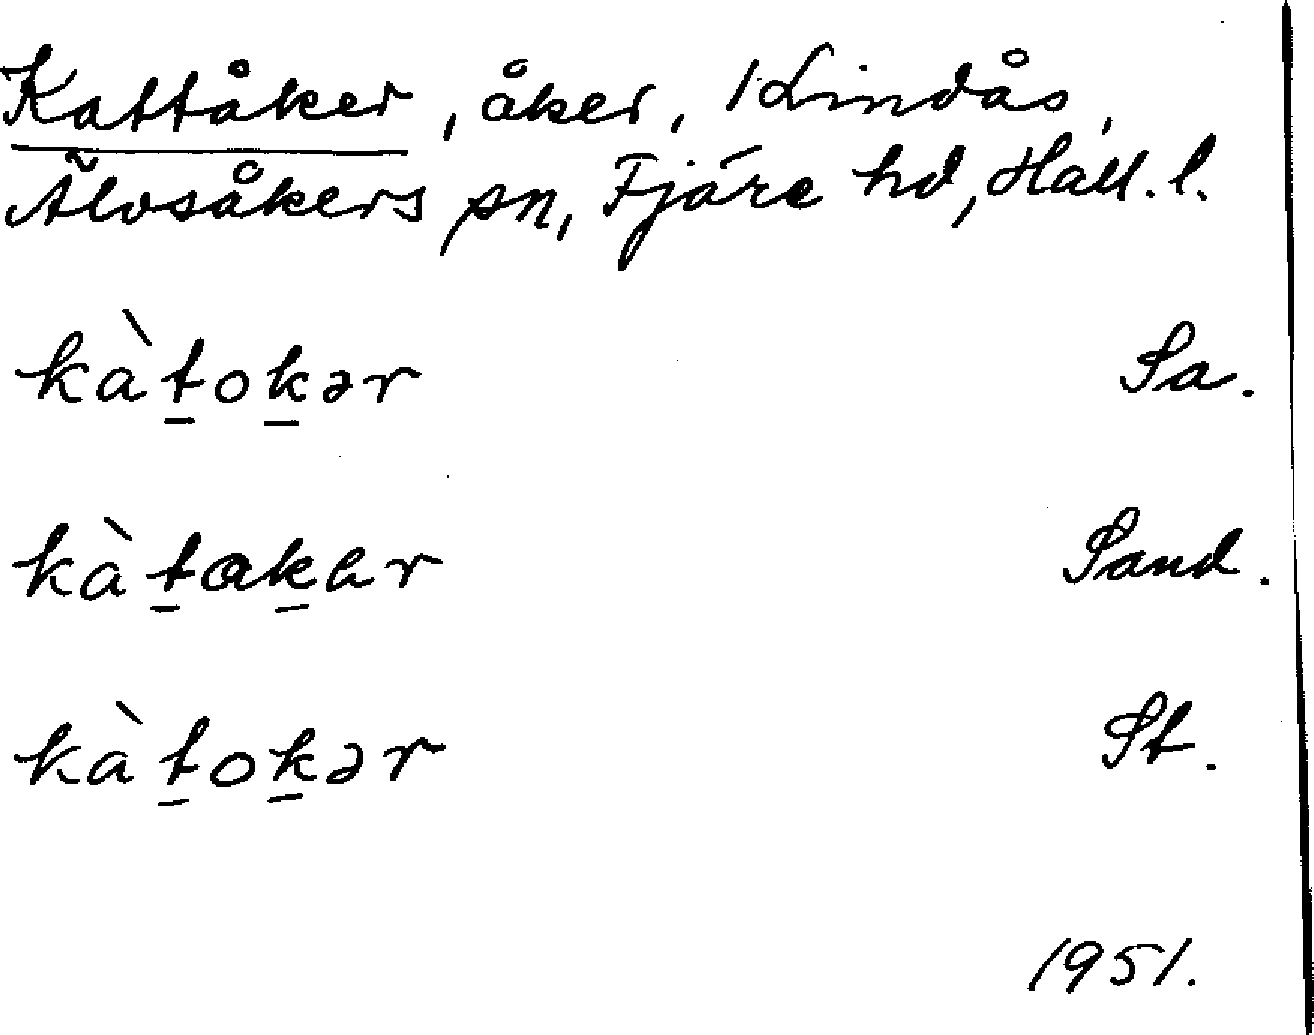 Kattåker, åker, 1 Lindås,
Älvsåkers sn, Fjäre hd, Hall. l.
kàt̠ok̠ər Sa.
kàt̠ak̠ar Sand.
kàt̠ok̠ər St.
1951.